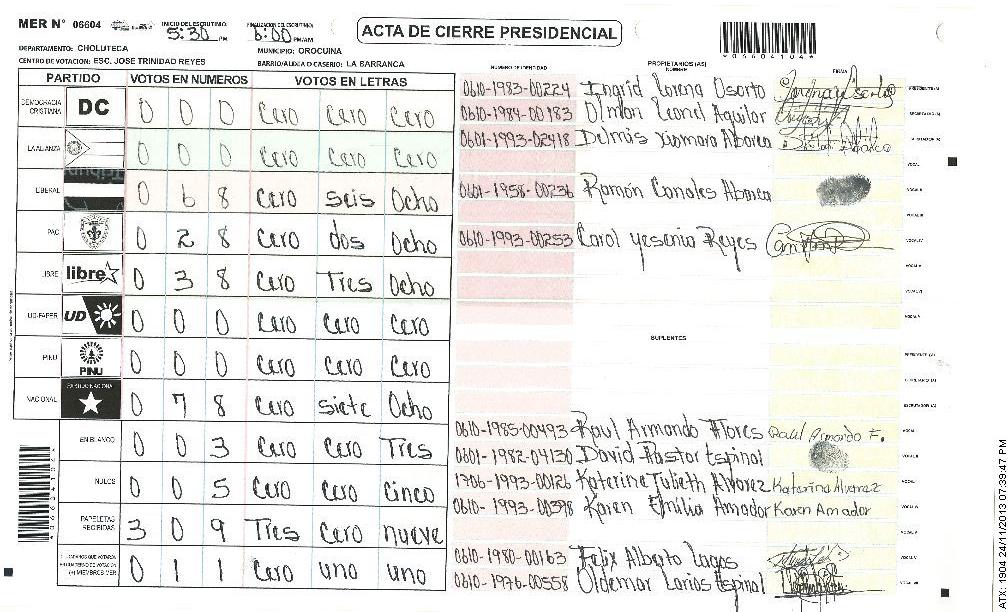 MER N° 06604
INICIO DE ESCRUTINIO: 5:30 PM
FINALIZACION DEL ESCRUTINIO: 6:00 PM/AM
ACTA DE CIERRE PRESIDENCIAL
*06604104*
DEPARTAMENTO: CHOLUTECA
MUNICIPIO: OROCUINA
CENTRO DE VOTACION: ESC. JOSE TRINIDAD REYES
BARRIO/ALDEA O CASERIO: LA BARRANCA
PARTIDO VOTOS EN NUMEROS VOTOS EN LETRAS
DEMOCRACIA CRISTIANA DC 0 0 0 Cero Cero Cero
LA ALIANZA 0 0 0 Cero Cero Cero
LIBERAL 0 6 8 Cero seis Ocho
PAC 0 2 8 Cero dos Ocho
LIBRE libre 0 3 8 Cero Tres Ocho
UD-FAPER UD 0 0 0 Cero Cero Cero
PINU PINU 0 0 0 Cero Cero Cero
NACIONAL PARTIDO NACIONAL 0 7 8 Cero siete Ocho
EN BLANCO 0 0 3 Cero Cero Tres
NULOS 0 0 5 Cero Cero Cinco
PAPELETAS RECIBIDAS 3 0 9 Tres Cero nueve
CIUDADANOS QUE VOTARON
(+) MIEMBROS MER 0 1 1 Cero uno uno
NUMERO DE IDENTIDAD PROPIETARIOS (AS) NOMBRE FIRMA
0610-1983-00224 Ingrid Lorena Osorto PRESIDENTE (A)
0610-1984-00183 Olman Leonel Aguilar SECRETARIO (A)
0601-1993-02418 Delmis Xiomara Abarca ESCRUTADOR (A)
VOCAL I
0601-1958-00236 Ramón Canales Abarca VOCAL II
VOCAL III
0610-1993-00253 Carol yesenia Reyes VOCAL IV
SUPLENTES
PRESIDENTE (A)
SECRETARIO (A)
ESCRUTADOR (A)
0610-1985-00493 Raul Armando Flores Raul Armando F.
0601-1982-04130 David Pastor Espinal
1706-1993-00126 Katerine Julieth Alvarez Katerine Alvarez
0610-1993-00398 Karen Emilia Amador Karen Amador
0610-1980-00163 Felix Alberto Lagos
0610-1976-00558 Oldemar Larios Espinal
ATX: 1904 24/11/2013 07:39:47 PM